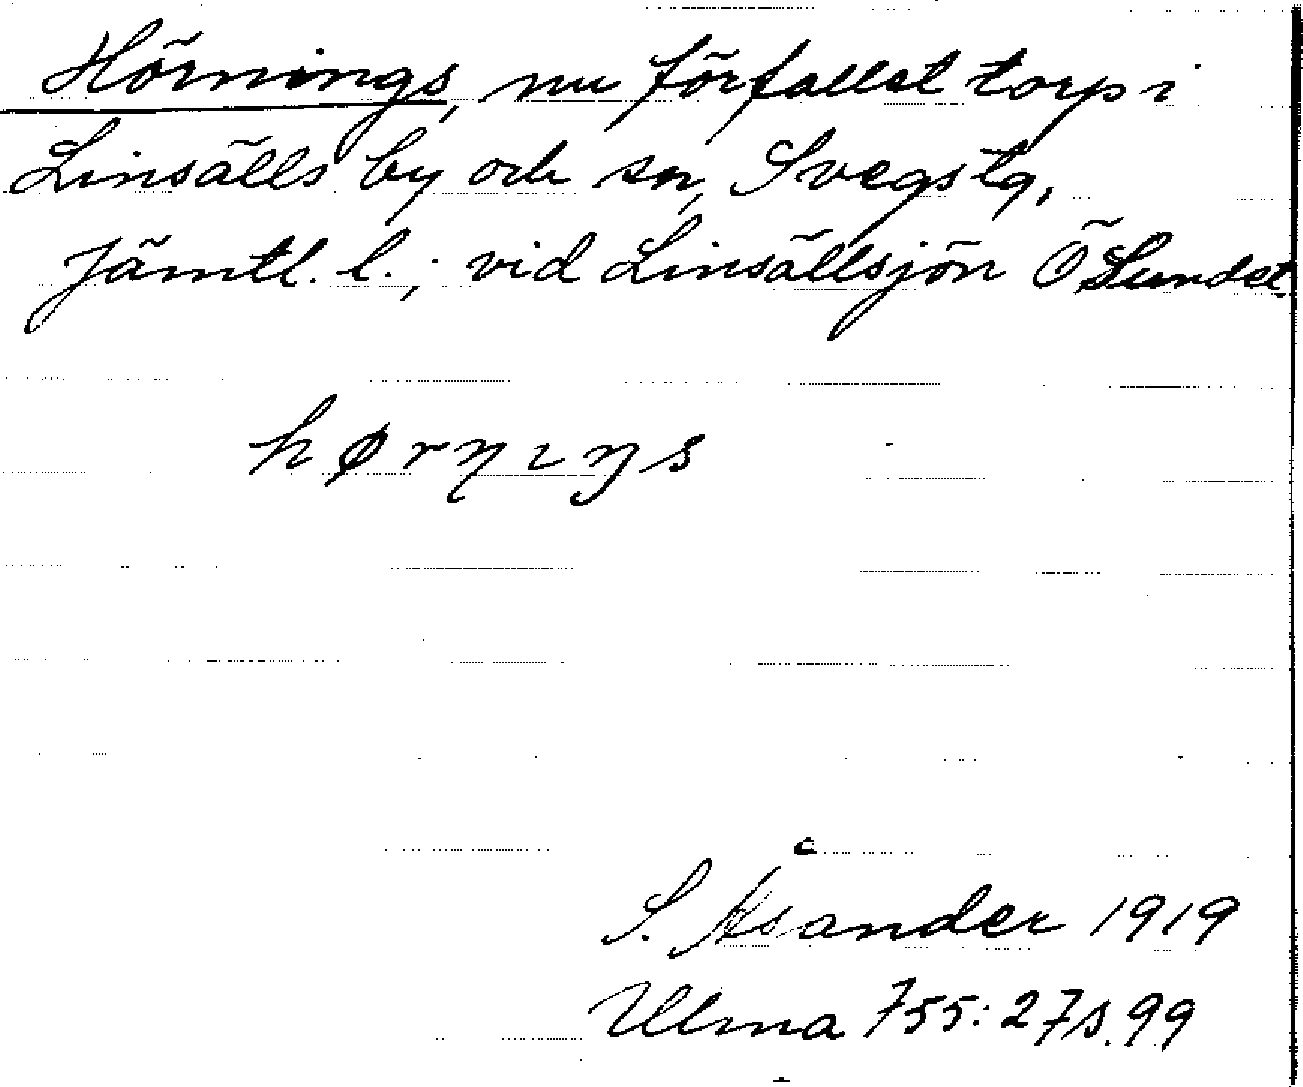 Hörnings, nu förfallet torp i
Linsälls by och sn, Svegs tg,
Jämtl. l.; vid Linsällsjön Ö Sundet.
hørηıŋs
S. Åsander 1919
Ulma 755:27 s. 99